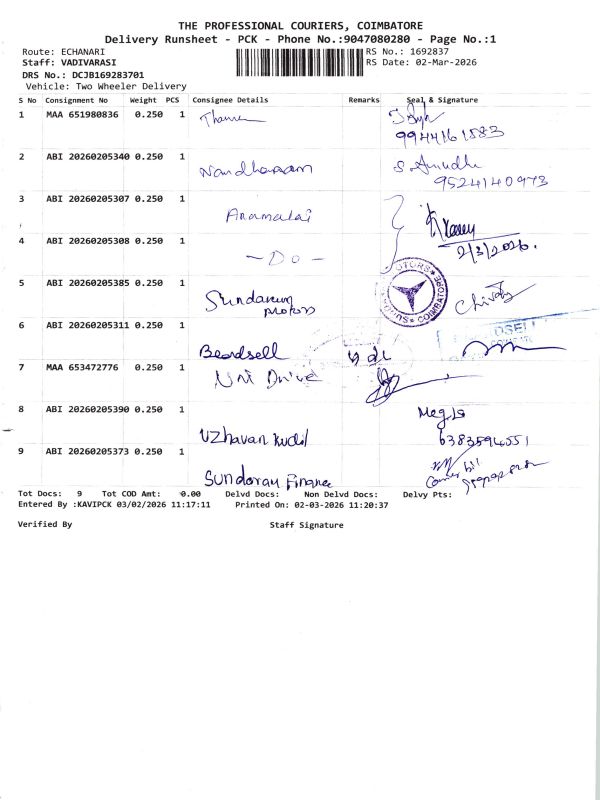 THE PROFESSIONAL COURIERS, COIMBATORE
Delivery Runsheet - PCK - Phone No.:9047080280 - Page No.:1
Route: ECHANARI
RS No.: 1692837
Staff: VADIVARASI
RS Date: 02-Mar-2026
DRS No.: DCJB169283701
Vehicle: Two Wheeler Delivery
S No Consignment No Weight PCS Consignee Details Remarks Seal & Signature
1 MAA 651980836 0.250 1
9944161583
2 ABI 20260205340 0.250 1
9524140973
3 ABI 20260205307 0.250 1 Anamalai
4 ABI 20260205308 0.250 1 - Do - 2/3/2026.
5 ABI 20260205385 0.250 1 Sundaram Motors
COIMBATORE
6 ABI 20260205311 0.250 1 Beardsell
7 MAA 653472776 0.250 1 Uni Drive
8 ABI 20260205390 0.250 1 Uzhavan Kudil
6383594551
9 ABI 20260205373 0.250 1 Sundaram Finance
Tot Docs: 9 Tot COD Amt: 0.00 Delvd Docs: Non Delvd Docs: Delvy Pts:
Entered By :KAVIPCK 03/02/2026 11:17:11 Printed On: 02-03-2026 11:20:37
Verified By Staff Signature